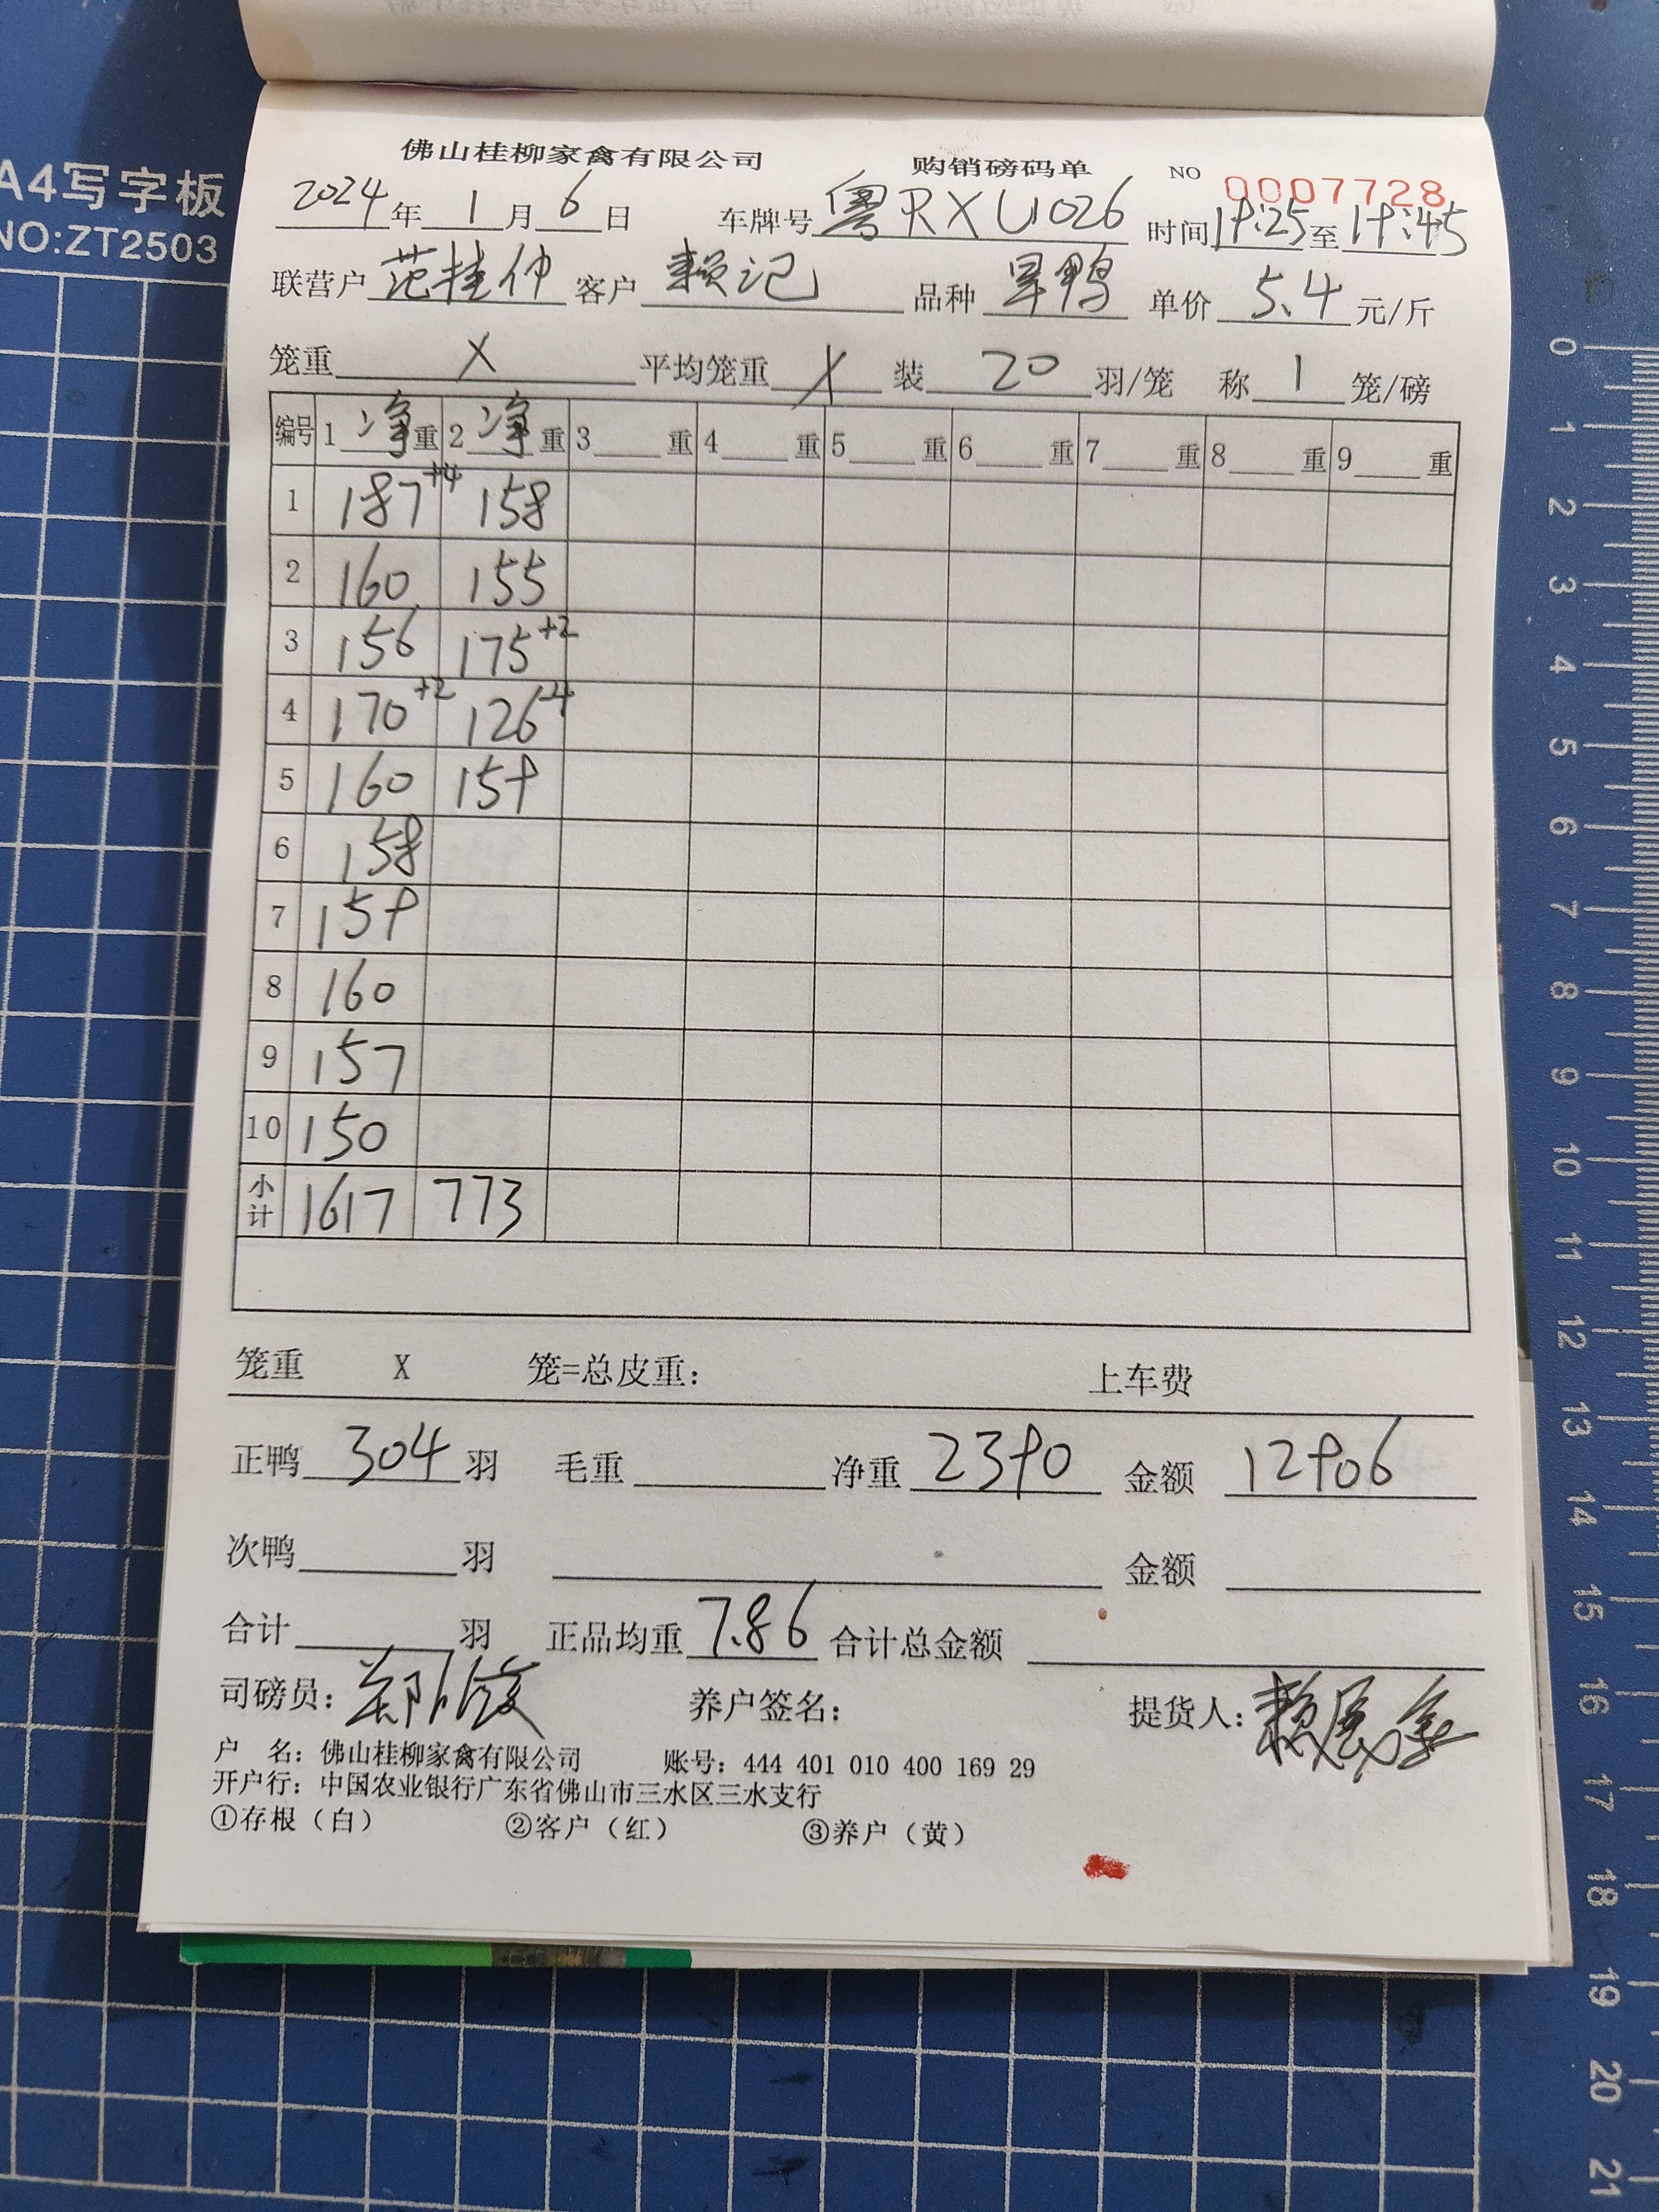 A4写字板
NO:ZT2503
佛山桂柳家禽有限公司 购销磅码单 NO 0007728
2024年1月6日 车牌号粤RXU026 时间19:25至19:45
联营户范桂仲 客户赖记 品种旱鸭 单价5.4元/斤
笼重X 平均笼重X 装20羽/笼 称1笼/磅
编号 1净重 2净重 3重 4重 5重 6重 7重 8重 9重
1 187+4 158
2 160 155
3 156 175+2
4 170+2 126-4
5 160 159
6 158
7 159
8 160
9 157
10 150
小计 1617 773
笼重 X 笼=总皮重: 上车费
正鸭304羽 毛重 净重2390 金额12906
次鸭 羽 金额
合计 羽 正品均重7.86 合计总金额
司磅员: 养户签名: 提货人:
户 名: 佛山桂柳家禽有限公司 账号: 444 401 010 400 169 29
开户行: 中国农业银行广东省佛山市三水区三水支行
①存根(白) ②客户(红) ③养户(黄)
0
1
2
3
4
5
6
7
8
9
10
11
12
13
14
15
16
17
18
19
20
21